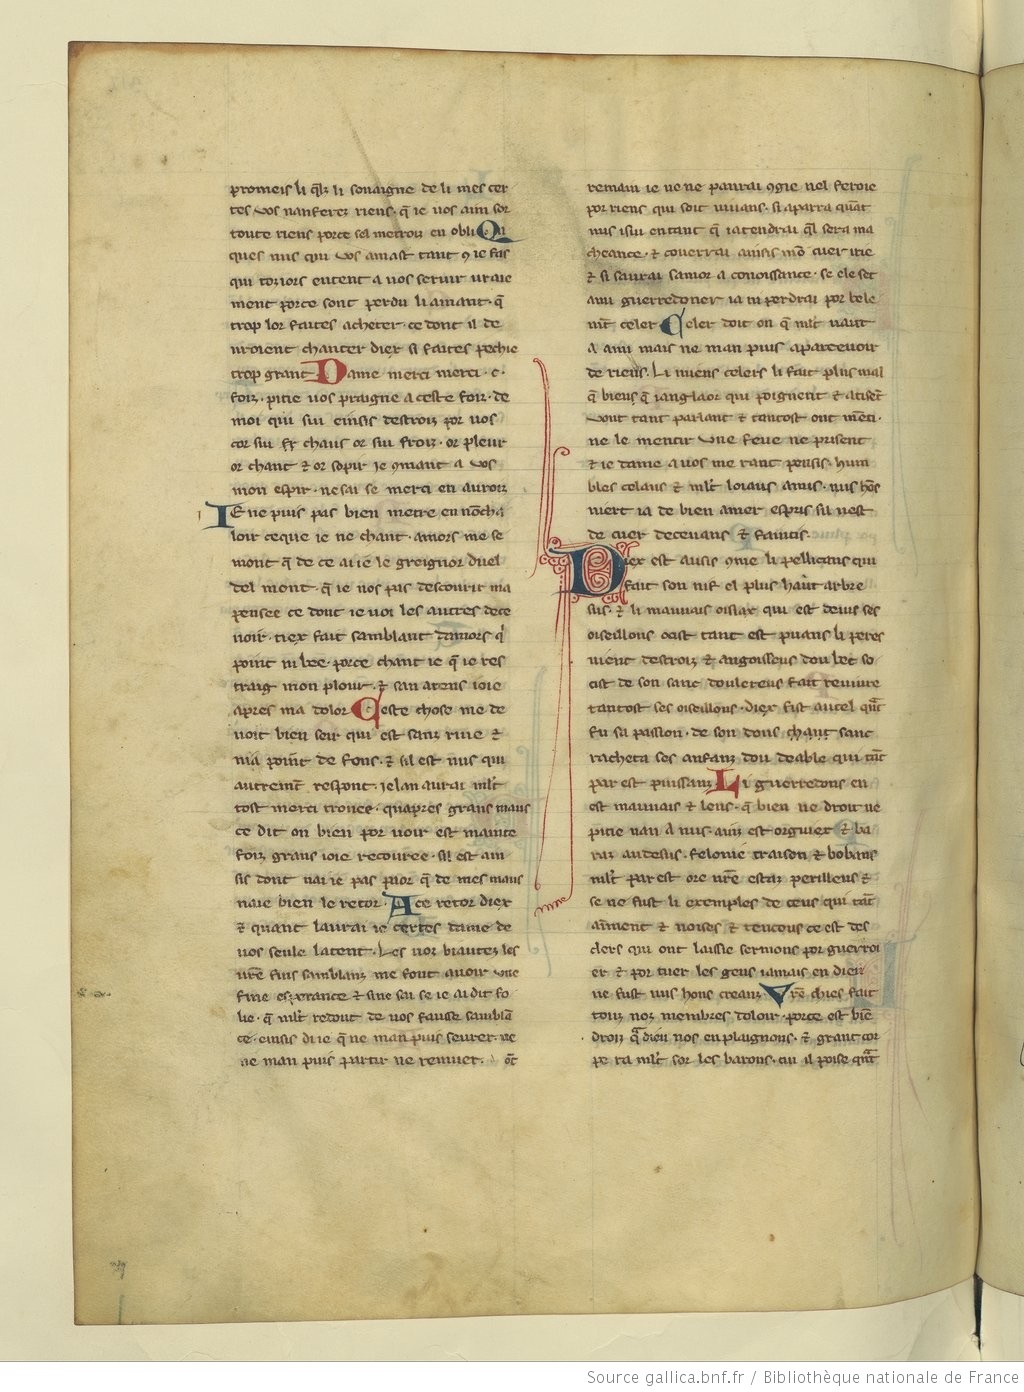 promeis li qlz li souaigne de li mes cer
tes vos nanferez riens · q̄ ie vos aim sor
toute riens porce sa metroiz en obli Qi
ques nus qui vos amast tant 9 ie fas
qui toziors entent a vos seruir uraie
ment porce sont perdu li amant · q̄
trop lor faites acheter · ce dont il de
uroient chanter diex si faites pechie
trop grant Dame merci merci · c ·
foiz · pitie uos praigne a ceste foiz · de
moi qui sui einsis destroiz por uos
cor sui fr chaus or sui froiz · or pleur
or chant ⁊ or sopir ie 9mant a vos
mon espir · ne sai se merci en auroiz
IE ne puis pas bien metre en nōcha
loir ceque ie ne chant · amors me se
mont q̄ de ce ai ie le greignor duel
del mont · q̄ ie nos pas descourir ma
pensee ce dont ie uoi les autres dece
uoir · tiex fait samblant damors q'
point ni bee · porce chant ie q̄ ie res
traig mon plour · ⁊ san atens ioie
apres ma dolor Ceste chose me de
uoit bien seoir qui est sanz riue ⁊
nia point de fons · ⁊ sil est nus qui
autremt̄ respont · ie lan aurai mlt
tost merci trouee · quapres grans maus
ce dit on bien por uoir est mainte
foiz grans ioie recouree · sil est ain
sis dont naie pas pior q̄ de mes maus
naie bien le retor · Ace retor diex
⁊ quant laurai ie certes dame de
uos seule latent · Les uoz biautez les
ur̄e fins samblanz me font auoir une
fine esperance ⁊ sine sai se ie ai dit fo
lie · q̄ mlt redout de uos fause samblā
ce · einsis di ie q̄ ne man puis seurer · ne
ne man puis partir ne remuer · ōt
remain ie ne ne pourai 9gie nel feroie
por riens qui soit uiuans · si aparra quāt
nus isui entant q̄ iatendrai ql sera ma
cheance · ⁊ couerrai ainsis mō cuer irie
⁊ si saurai samor a conoissance · se ele set
ami guerredoner ia ni perdrai por bele
mt̄ celer Celer doit on q̄ mlt uaut
a ami mais ne man puis aparceuoir
de riens · Li miens celers li fait plus mal
q̄ biens q̄ ianglaor qui poignent ⁊ atisēt
vont tant parlant ⁊ tantost ont mēti ·
ne le mentir une feue ne prisent
⁊ ie dame a uos me rant pensis · hum
bles celans ⁊ mlt loiaus amis · nus hōs
niert ia de bien amer espris sil nest
de cuer deceuans ⁊ faintis ·
Diex est ausis 9me li pellicans qui
fait son nif el plus haut arbre
sus · ⁊ li mauuais oisiax qui est deius ses
oiseillons ocist tant est puans li peres
uient destroiz ⁊ angoisseus dou bec so
cist de son sanc doulereus fait reuiure
tantost ses oiseillons · diex fist autel quāt
fu sa passion · de son dous chaut sanc
racheta ses anfanz dou deable qui tāt
par est puissanz Li guerredons en
est mauuais ⁊ lens · q̄ bien ne droit ne
pitie nan a nus · ainz est orguiex ⁊ ba
raz audesus · felonie traison ⁊ bobans
mlt par est ore nr̄e estaz perilleus ⁊
se ne fust li exemples de ceus qui tāt
aiment ⁊ noises ⁊ tencons ce est des
clers qui ont laissie sermons por guerroi
er ⁊ por tuer les gens iamais en dieu
ne fust nus hons creanz Vr̄e chies fait
touz noz membres doloir · porce est biē
droiz qā dieu nos en plaignons · ⁊ grant cor
pe ra mlt sor les barons · cui il poise quāt